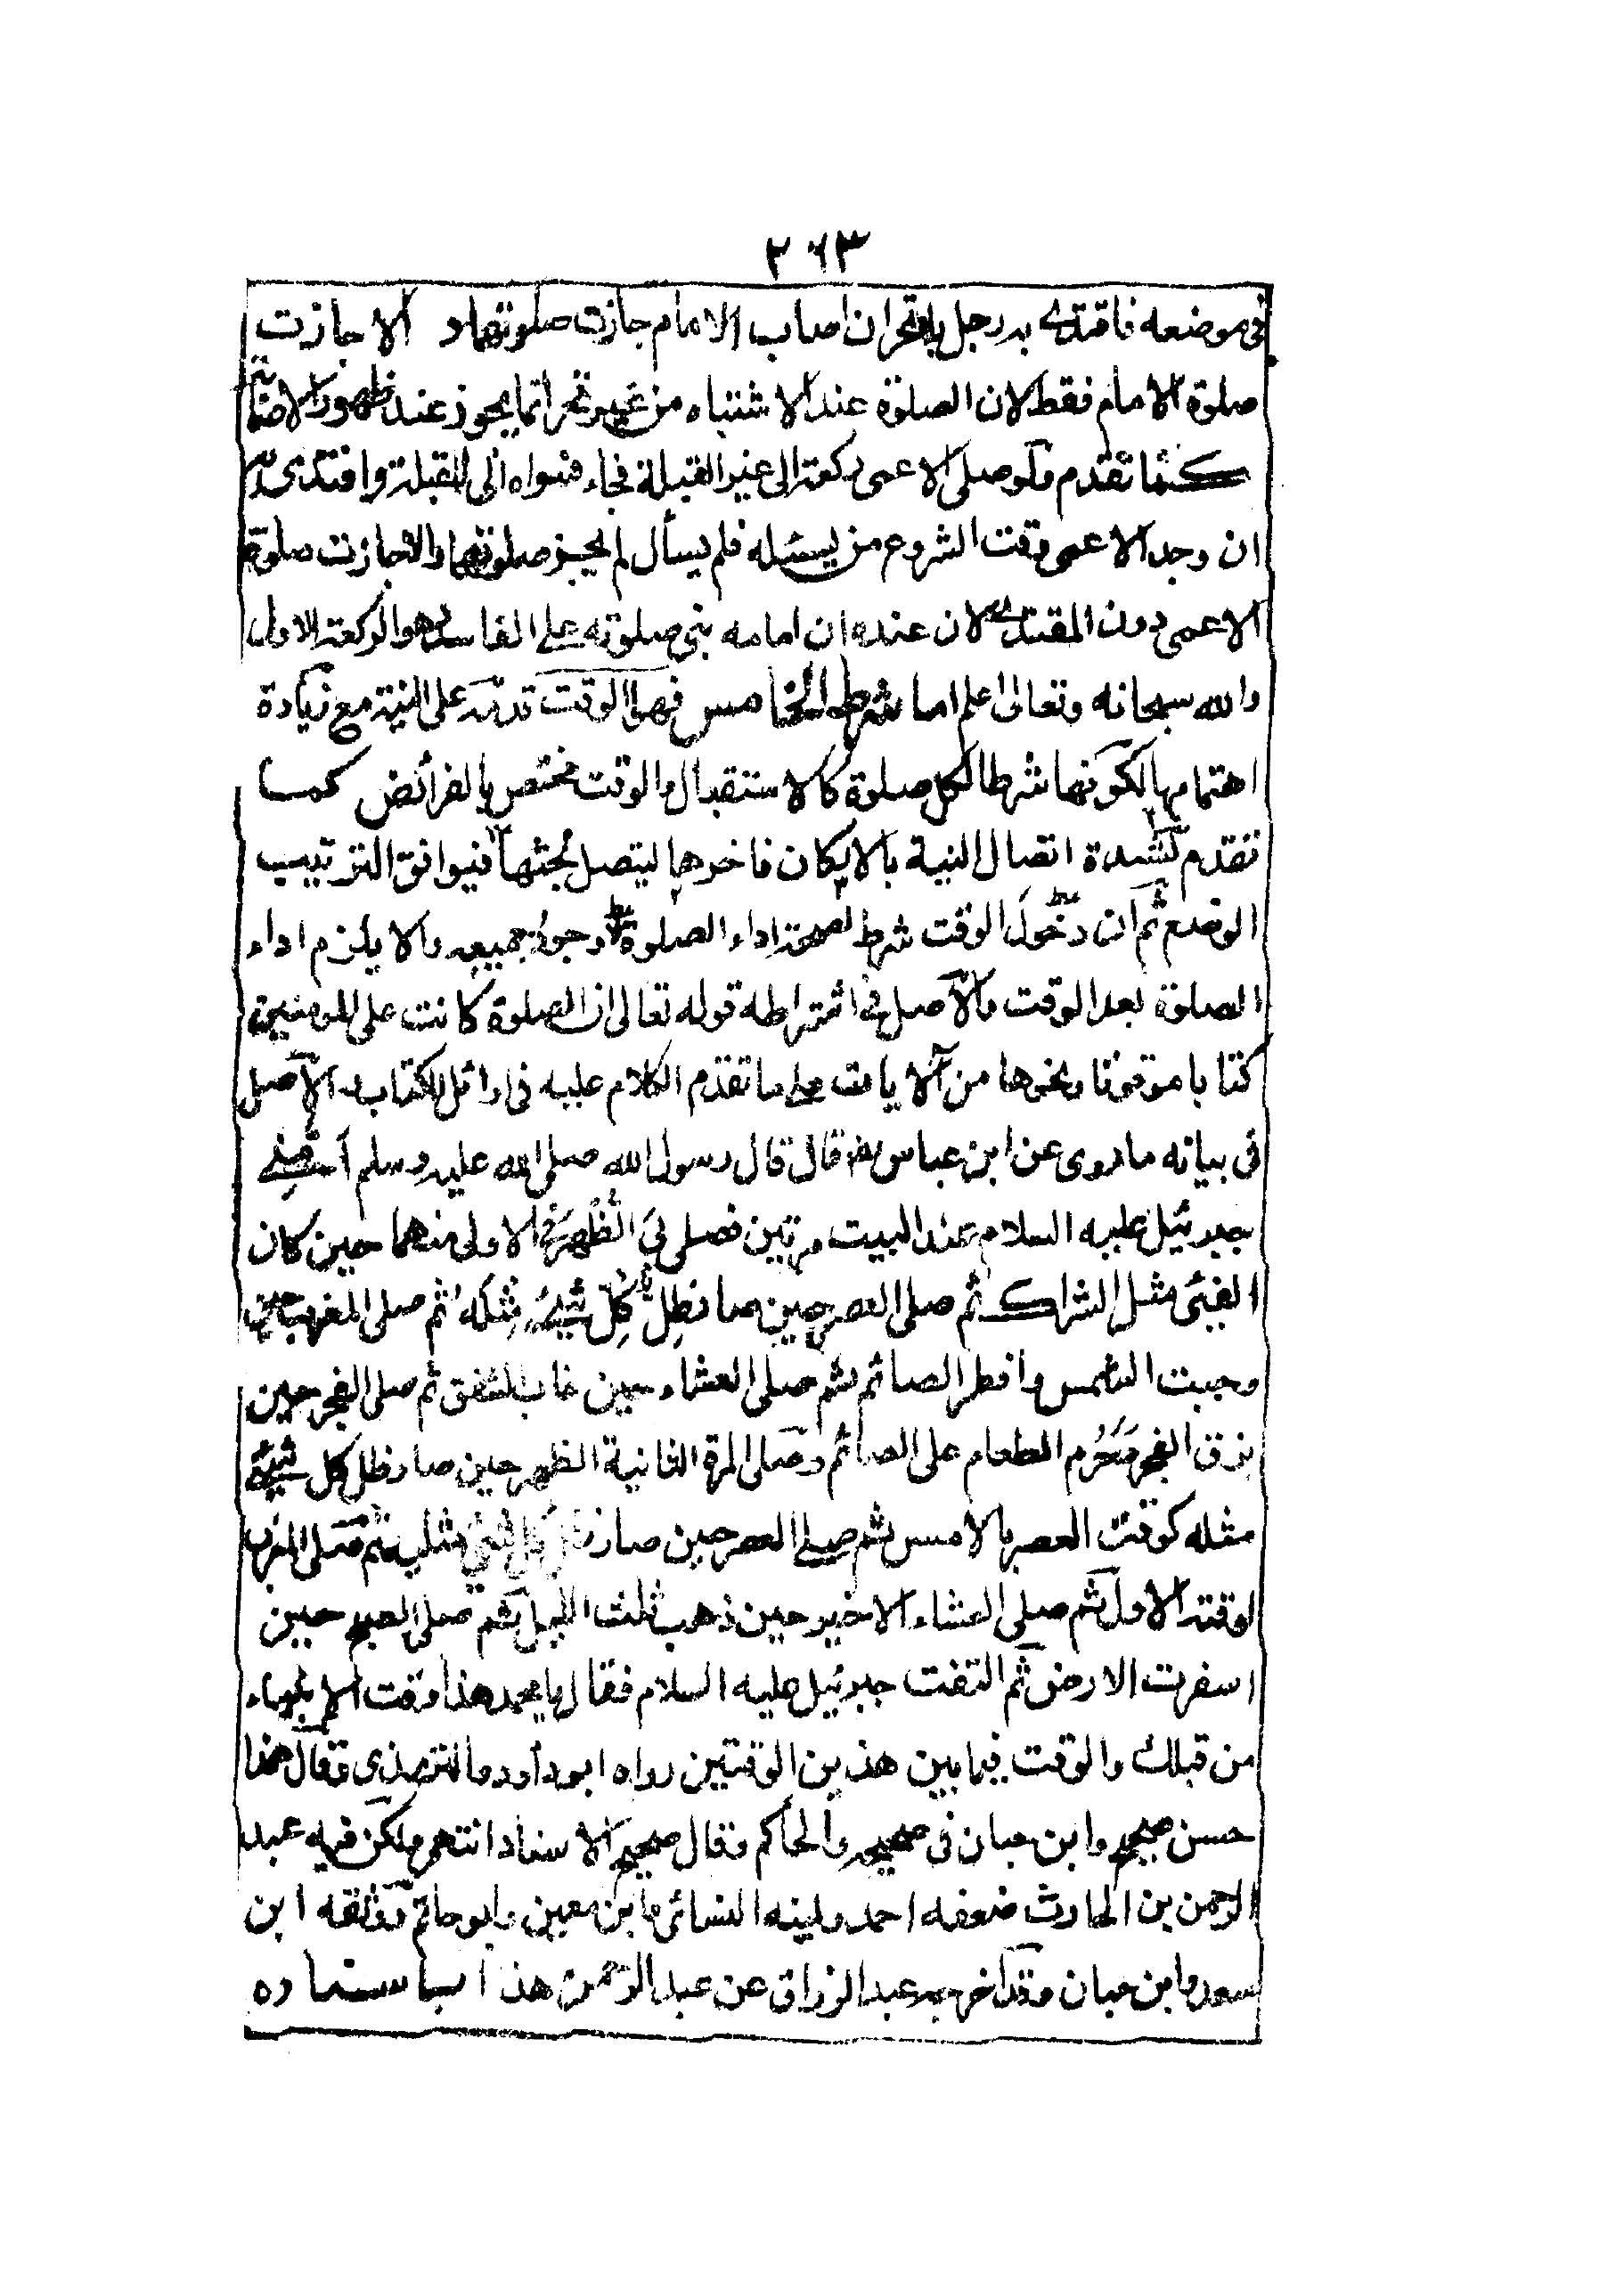 ٢٦٣
في موضعه فاقتدى به رجل بلا تحر ان اصاب الامام جازت صلوتهما و الا جازت
صلوة الامام فقط لان الصلوة عند الاشتباه من غير تحر انما يجوز عند ظهور الاصابة
كما تقدم ولو صلى الاعمى ركعة الى غير القبلة فجاء فسواه الى القبلة واقتدى به
ان وجد الاعمى وقت الشروع من يسئله فلم يسأل لم يجز صلوتهما والا جازت صلوة
الاعمى دون المقتدى لان عنده ان امامه بنى صلوته على الفاسد وهو الركعة الاولى
والله سبحانه وتعالى اعلم اما شرط الخامس فهو الوقت قدمه على النية مع زيادة
اهتمامها لكونها شرطا لكل صلوة كالاستقبال والوقت مختص بالفرائض كما
تقدم لشدة اتصال النية بالاركان فاخرها ليتصل بحثها فيوافق الترتيب
الوضع ثم ان دخول الوقت شرط لصحة اداء الصلوة لا وجود جميعه والا يلزم اداء
الصلوة بعد الوقت والاصل في اشتراطه قوله تعالى ان الصلوة كانت على المومنين
كتابا موقوتا ونحوها من الايات على ما تقدم الكلام عليه في اوائل الكتاب والاصل
في بيانه ما روى عن ابن عباس رض قال قال رسول الله صلى الله عليه وسلم امنى
جبرئيل عليه السلام عند البيت مرتين فصلى بى الظهر في الاولى منهما حين كان
الفيئى مثل الشراك ثم صلى العصر حين صار ظل كل شيء مثله ثم صلى المغرب حين
وجبت الشمس وافطر الصائم ثم صلى العشاء حين غاب الشفق ثم صلى الفجر حين
بزق الفجر وحرم الطعام على الصائم وصلى المرة الثانية الظهر حين صار ظل كل شيء
مثله كوقت العصر بالامس ثم صلى العصر حين صار ظل كل شيء مثليه ثم صلى المغرب
لوقته الاول ثم صلى العشاء الاخير حين ذهب ثلث الليل ثم صلى الصبح حين
اسفرت الارض ثم التفت جبرئيل عليه السلام فقال يا محمد هذا وقت الانبياء
من قبلك والوقت فيما بين هذين الوقتين رواه ابو داود والترمذى وقال هذا
حسن صحيح وابن حبان في صحيحه والحاكم وقال صحيح الاسناد انتهى ولكن فيه عبد
الرحمن بن الحارث ضعفه احمد ولينه النسائى وابن معين وابو حاتم ووثقه ابن
سعد وابن حبان وقد اخرجه عبد الرزاق عن عبد الرحمن هذا باسناده